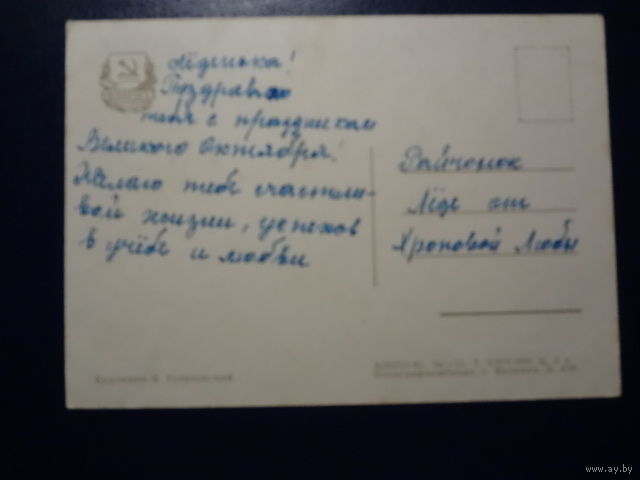 Лёдинька!
Поздравляю
тебя с праздником
Великого Октября!
Желаю тебе счастли-
вой жизни, успехов
в учёбе и любви
Райчонок
Лёде от
Хроповой Любы
Художник
www.ay.by